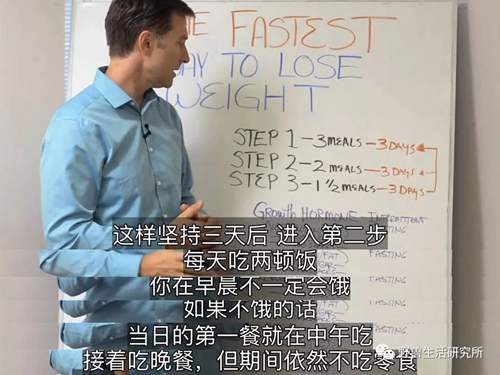 THE FASTEST
WAY TO LOSE
WEIGHT
STEP 1-3 MEALS-3 DAYS
STEP 2-2 MEALS-3 DAYS
STEP 3-1 1/2 MEALS-3 DAYS
GROWTH HORMONE INTERMITTENT
FASTING
FAT)
FASTING
FASTING
这样坚持三天后 进入第二步
每天吃两顿饭
你在早晨不一定会饿
如果不饿的话
当日的第一餐就在中午吃
接着吃晚餐，但期间依然不吃零食
野兽生活研究所